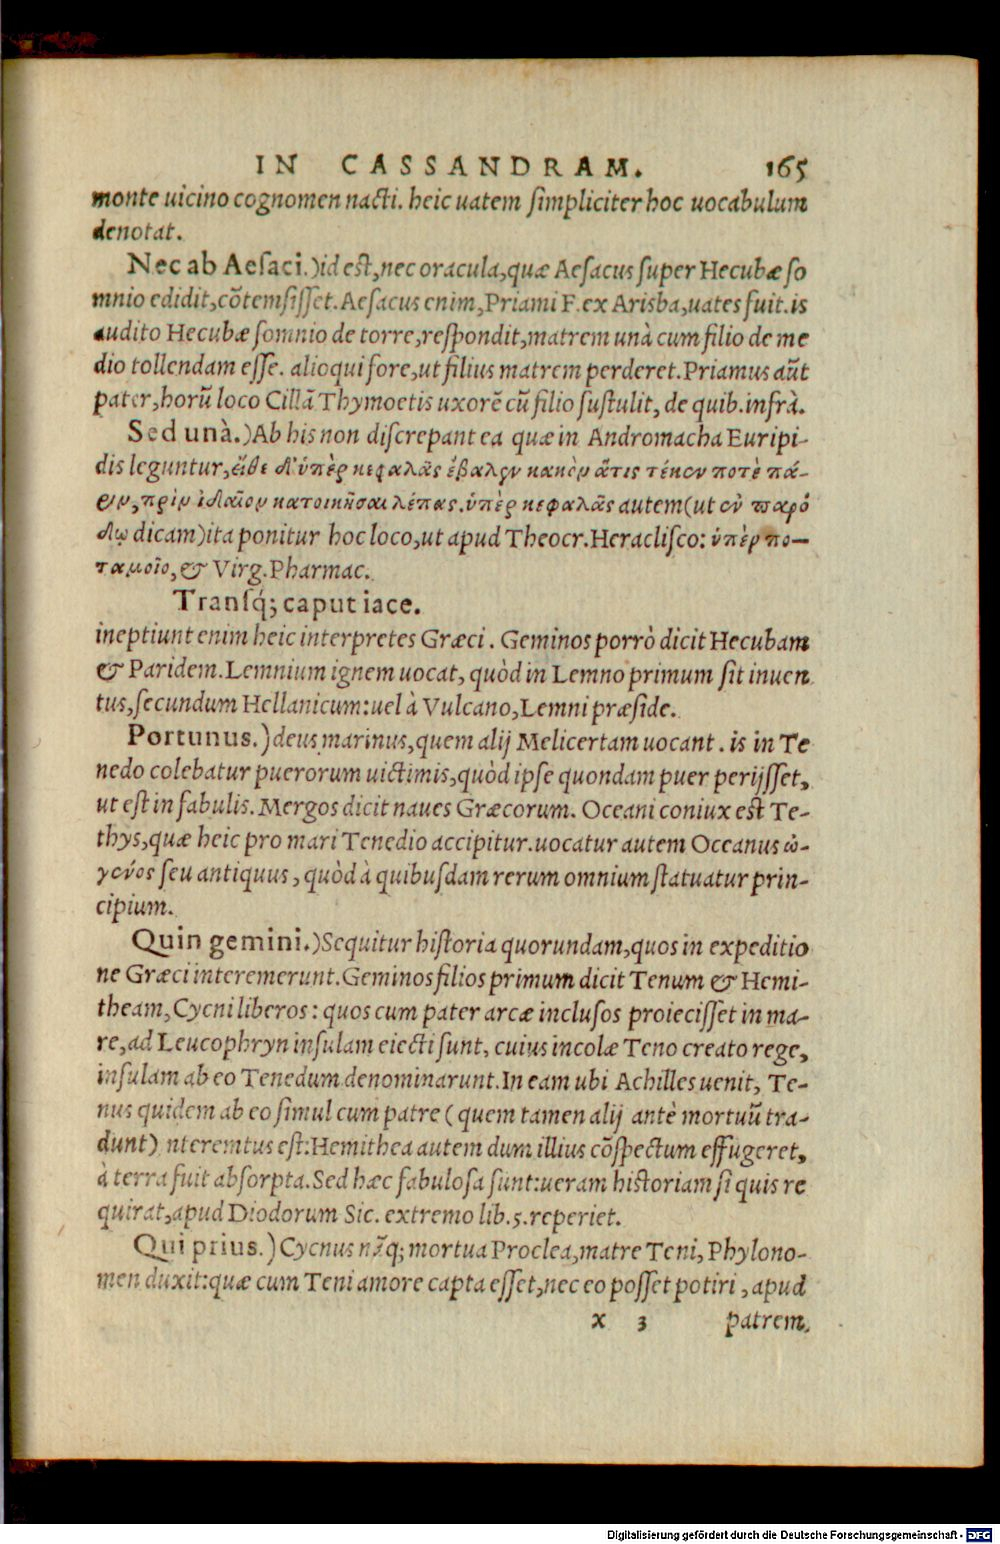 IN CASSANDRAM. 165
monte uicino cognomen nacti. heic uatem simpliciter hoc uocabulum
denotat.
Nec ab Aesaci.) id est, nec oracula, quæ Aesacus super Hecubæ so
mnio edidit, cõtemsisset. Aesacus enim, Priami F. ex Arisba, uates fuit. is
audito Hecubæ somnio de torre, respondit, matrem unà cum filio de me
dio tollendam esse. alioqui fore, ut filius matrem perderet. Priamus aũt
pater, horũ loco Cillã Thymoetis uxorẽ cũ filio sustulit, de quib. infrà.
Sed unà.) Ab his non discrepant ea quæ in Andromacha Euripi-
dis leguntur, εἴθε δ' ὑπὲρ κεφαλᾶς ἔβαλεν κακὸν ἅτις τέκεν ποτὲ πά-
ριν, πρὶν ἰδαῖον κατοικῆσαι λέπας. ὑπὲρ κεφαλᾶς autem (ut ἐν παρό
δῳ dicam) ita ponitur hoc loco, ut apud Theocr. Heraclisco: ὑπὲρ πο-
ταμοῖο, & Virg. Pharmac.
Transq́; caput iace.
ineptiunt enim heic interpretes Græci. Geminos porrò dicit Hecubam
& Paridem. Lemnium ignem uocat, quòd in Lemno primum sit inuen
tus, secundum Hellanicum: uel à Vulcano, Lemni præside.
Portunus.) deus marinus, quem alij Melicertam uocant. is in Te
nedo colebatur puerorum uictimis, quòd ipse quondam puer perijsset,
ut est in fabulis. Mergos dicit naues Græcorum. Oceani coniux est Te-
thys, quæ heic pro mari Tenedio accipitur. uocatur autem Oceanus ὠ-
γενός seu antiquus, quòd à quibusdam rerum omnium statuatur prin-
cipium.
Quin gemini.) Sequitur historia quorundam, quos in expeditio
ne Græci interemerunt. Geminos filios primum dicit Tenum & Hemi-
theam, Cycni liberos: quos cum pater arcæ inclusos proiecisset in ma-
re, ad Leucophryn insulam eiecti sunt, cuius incolæ Teno creato rege,
insulam ab eo Tenedum denominarunt. In eam ubi Achilles uenit, Te-
nus quidem ab eo simul cum patre (quem tamen alij antè mortuũ tra-
dunt) nteremtus est: Hemithea autem dum illius cõspectum effugeret,
à terra fuit absorpta. Sed hæc fabulosa sunt: ueram historiam si quis re
quirat, apud Diodorum Sic. extremo lib. 5. reperiet.
Qui prius.) Cycnus nãq; mortua Proclea, matre Teni, Phylono-
men duxit: quæ cum Teni amore capta esset, nec eo posset potiri, apud
x 3 patrem.
Digitalisierung gefördert durch die Deutsche Forschungsgemeinschaft - DFG